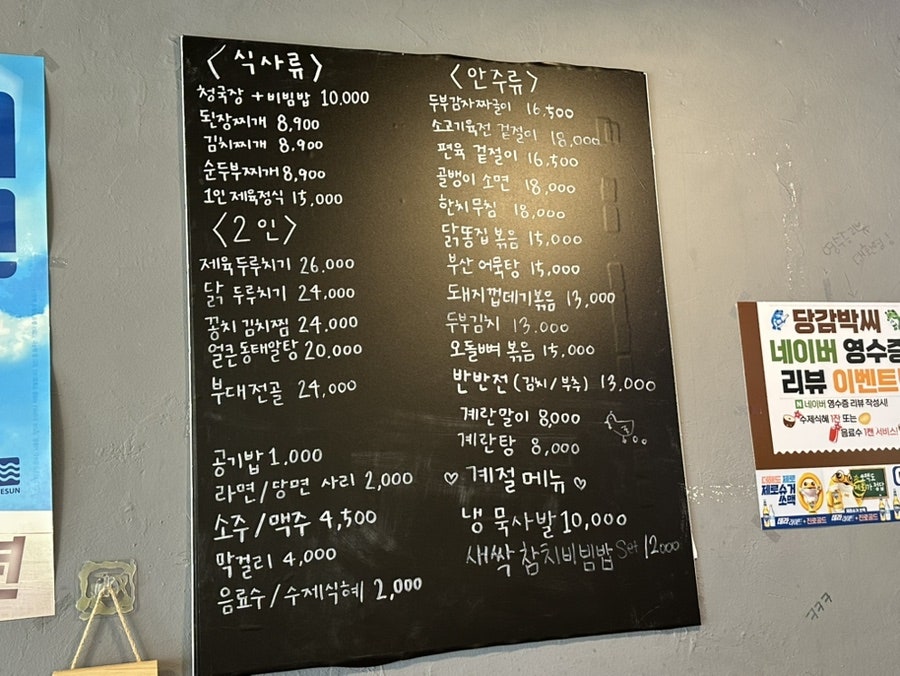 〈식사류〉
청국장 + 비빔밥 10,000
된장찌개 8,900
김치찌개 8,900
순두부찌개 8,900
1인 제육정식 15,000
〈2인〉
제육 두루치기 26,000
닭 두루치기 24,000
꽁치 김치찜 24,000
얼큰동태알탕 20,000
부대전골 24,000
공기밥 1,000
라면/당면 사리 2,000
소주/맥주 4,500
막걸리 4,000
음료수/수제식혜 2,000
〈안주류〉
두부감자짜글이 16,500
소고기육전 겉절이 18,000
편육 겉절이 16,500
골뱅이 소면 18,000
한치무침 18,000
닭똥집 볶음 15,000
부산 어묵탕 15,000
돼지껍데기볶음 13,000
두부김치 13.000
오돌뼈 볶음 15,000
반반전 (김치/부추) 13,000
계란말이 8,000
계란탕 8,000
♡ 계절 메뉴 ♡
냉 묵사발 10,000
새싹 참치비빔밥 Set 12000
당감박씨
네이버 영수증
리뷰 이벤트!
N 네이버 영수증 리뷰 작성시!
수제식혜 1잔 또는
음료수 1캔 서비스!
제로슈거
쏘맥
ㅋㅋㅋ